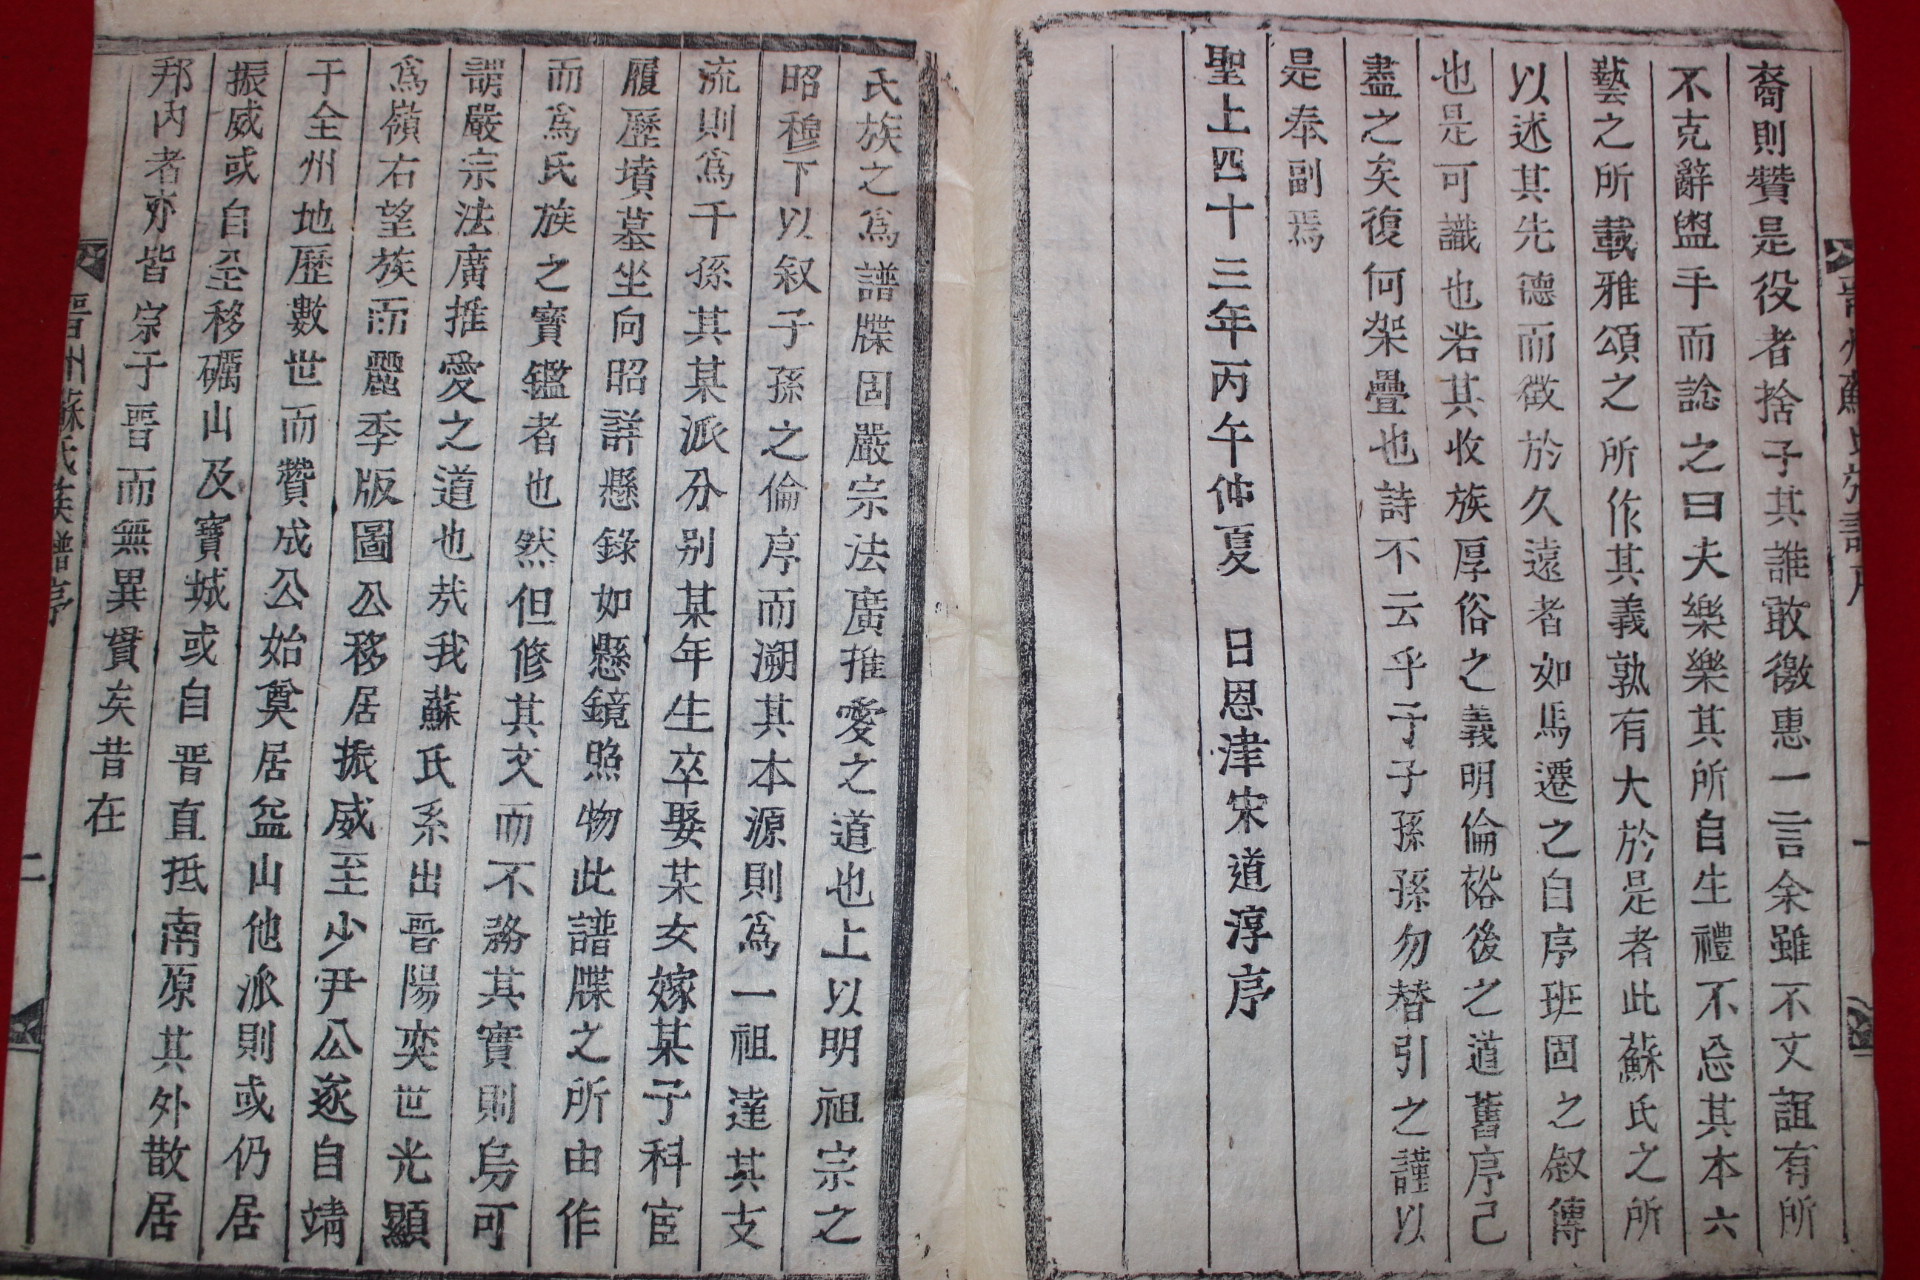 裔則贊是役者捨子其誰敢徼惠一言余雖不文誼有所
不克辭盥手而諗之曰夫樂樂其所自生禮不忘其本六
藝之所載雅頌之所作其義孰有大於是者此蘇氏之所
以述其先德而徵於久遠者如馬遷之自序班固之叙傳
也是可識也若其收族厚俗之義明倫裕後之道舊序已
盡之矣復何架疊也詩不云乎子子孫孫勿替引之謹以
是奉副焉
聖上四十三年丙午仲夏 日恩津宋道淳序
氏族之爲譜牒固嚴宗法廣推愛之道也上以明祖宗之
昭穆下以叙子孫之倫序而溯其本源則爲一祖達其支
流則爲千孫其某派分别某年生卒娶某女嫁某子科宦
履歷墳墓坐向昭詳懸錄如懸鏡照物此譜牒之所由作
而爲氏族之寶鑑者也然但修其文而不務其實則烏可
謂嚴宗法廣推愛之道也哉我蘇氏系出晋陽奕世光顯
爲嶺右望族而麗季版圖公移居振威至少尹公遂自靖
于全州地歷數世而贊成公始奠居益山他派則或仍居
振威或自至移礪山及寶城或自晋直抵南原其外散居
邦內者亦皆宗于晋而無異貫矣昔在
晋州蘇氏族譜序
二